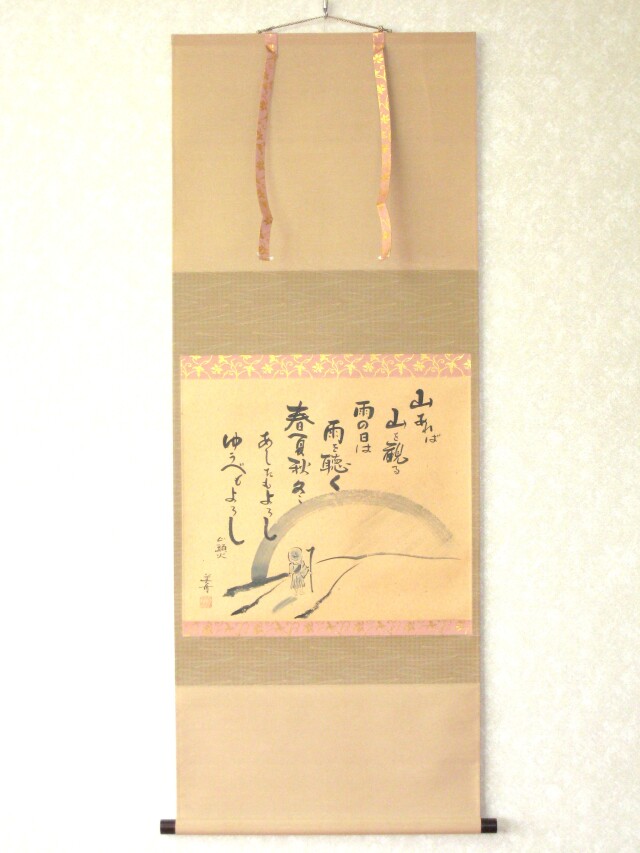 山あれば
山を観る
雨の日は
雨を聴く
春夏秋冬
あしたもよろし
ゆうべもよろし
山頭火